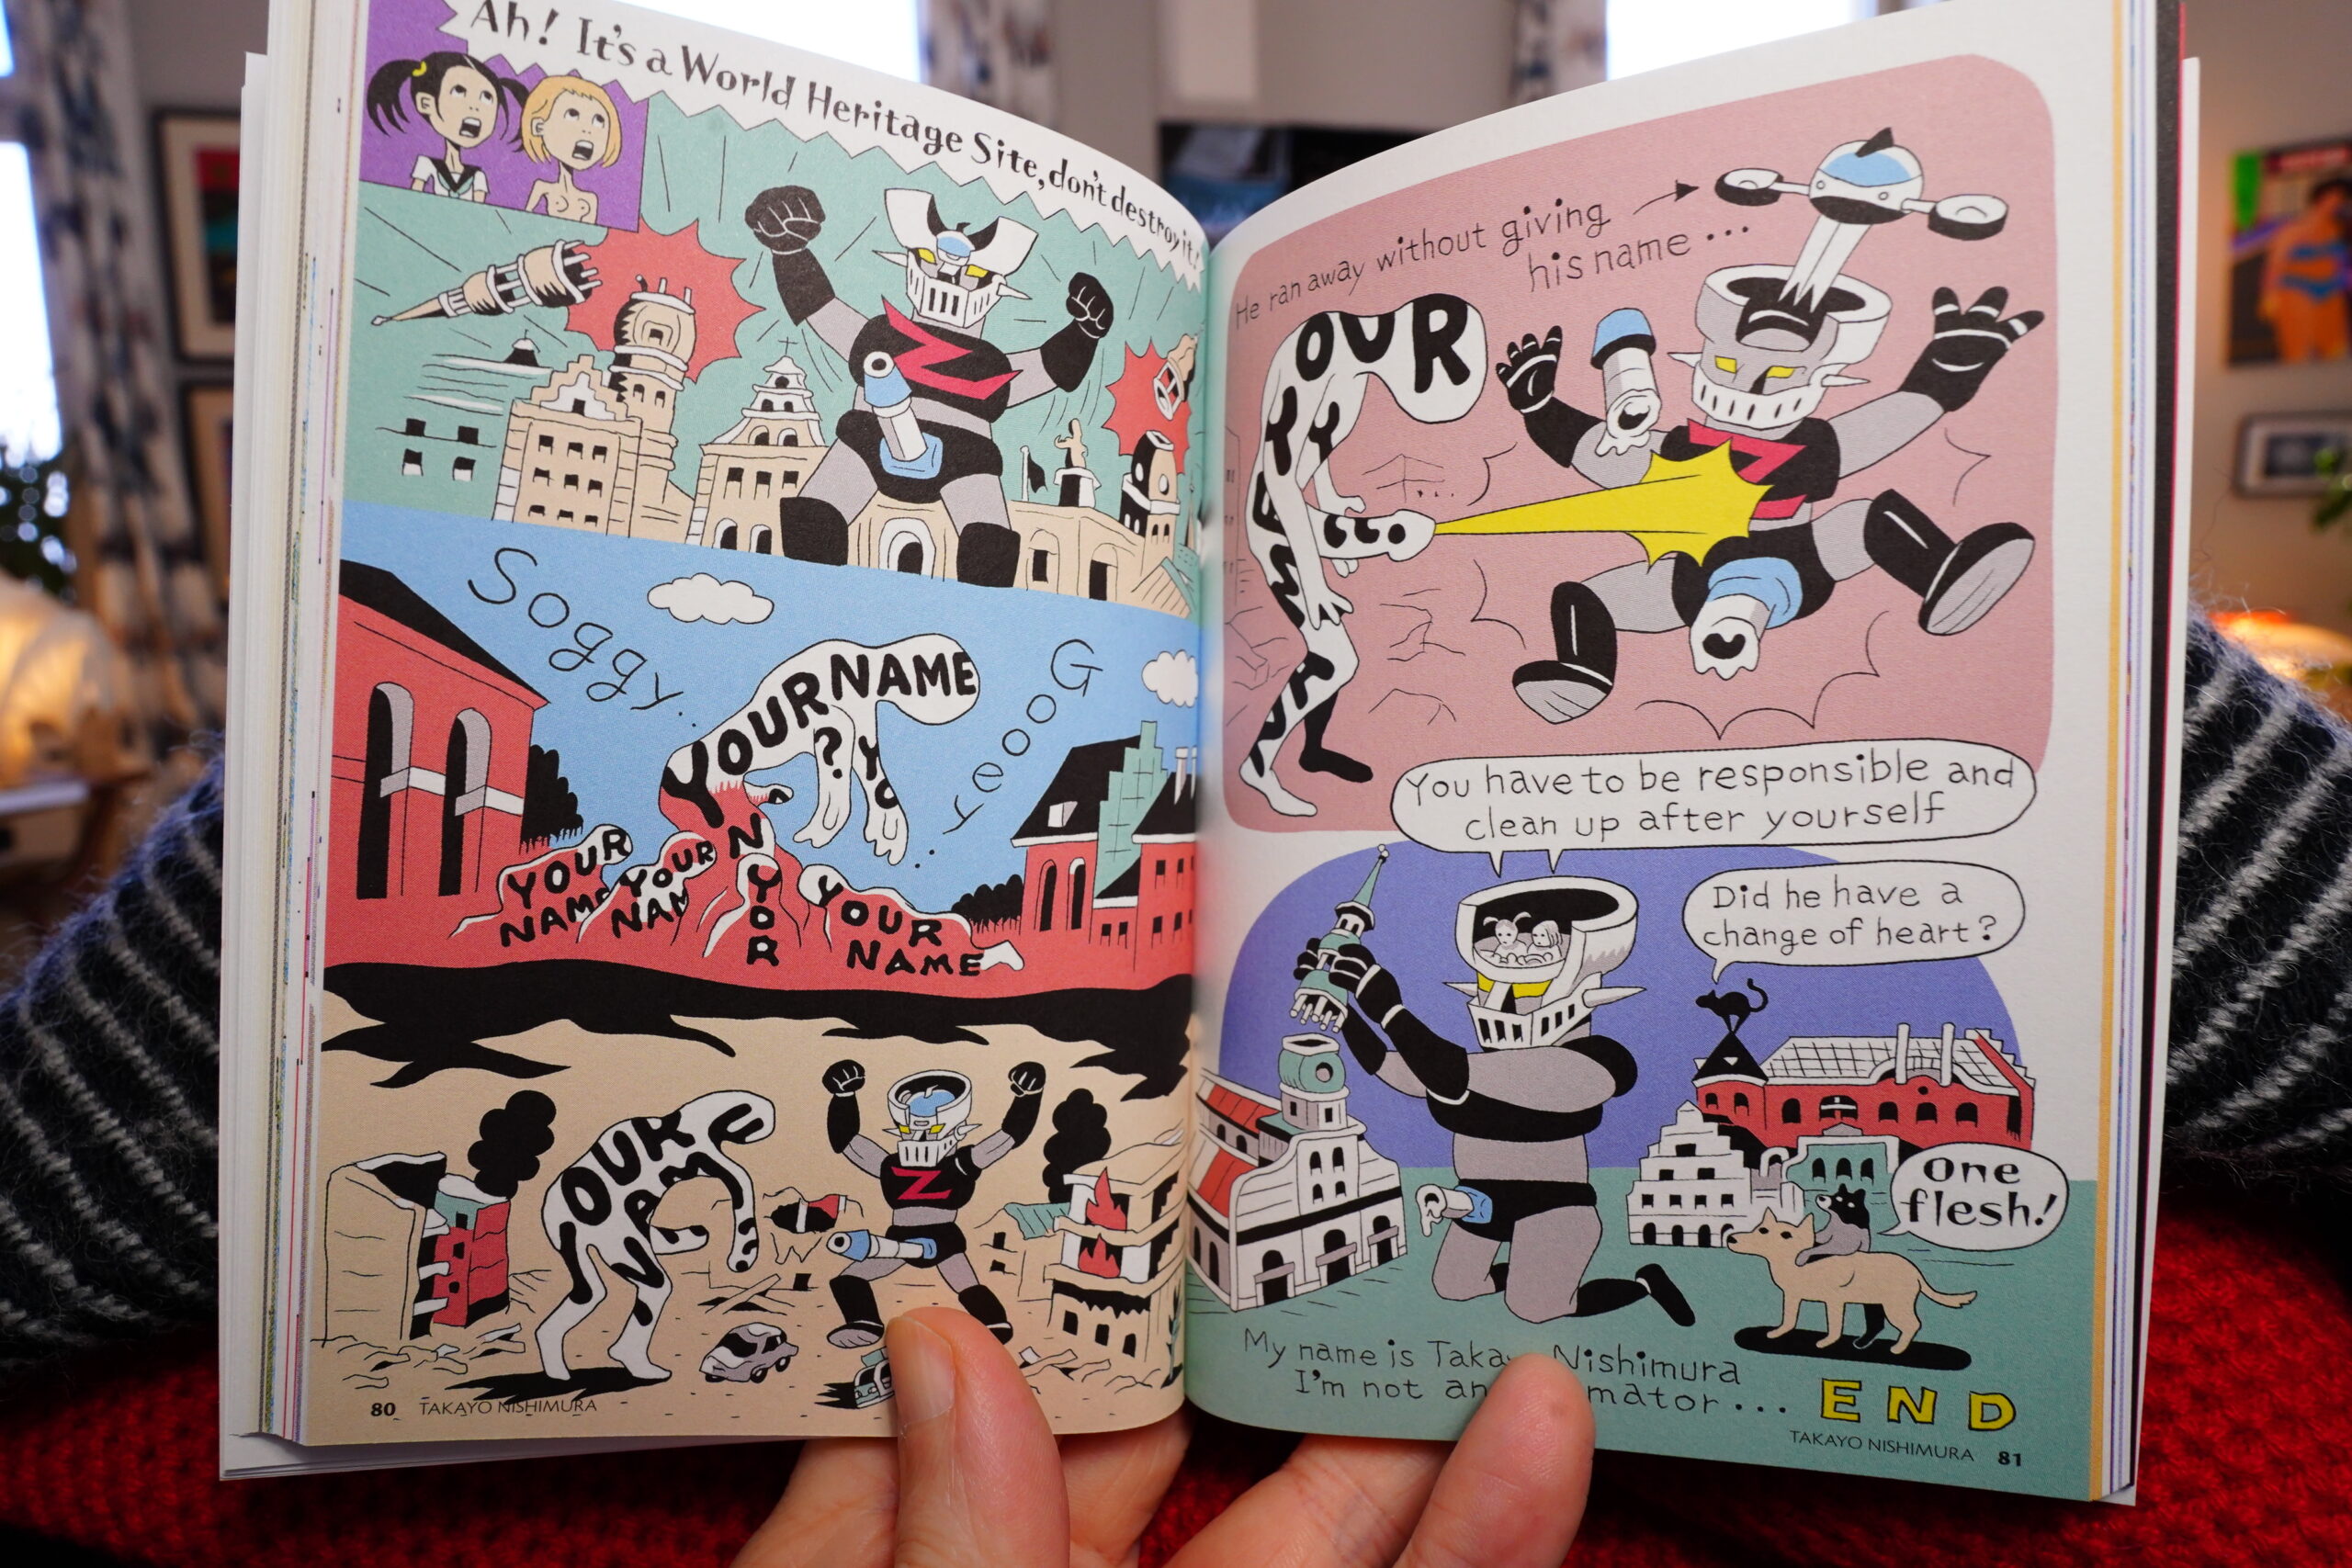 Ah! It's a World Heritage Site, don't destroy it!
Z
Soggy...
Gooey...
YOUR NAME
? YO
YOUR N
YOUR
NAME
YOUR
NAM
YOR
YOUR
NAME
OUR
NAM
Z
80 TAKAYO NISHIMURA
He ran away without giving
his name...
YOUR
Z
You have to be responsible and
clean up after yourself
Did he have a
change of heart?
One
flesh!
My name is Nishimura
I'm not
END
TAKAYO NISHIMURA 81